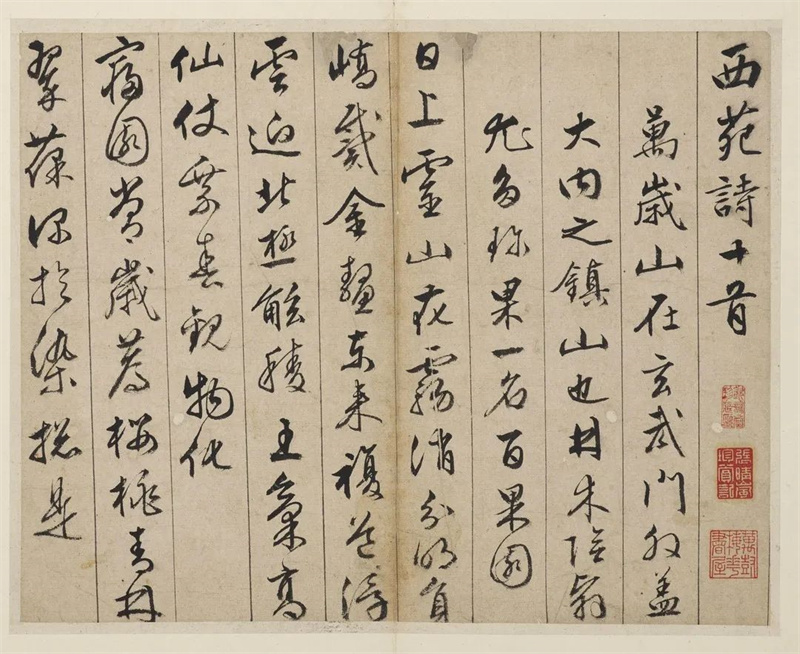 西苑詩十首
萬歲山在玄武門外蓋
大內之鎮山也林木陰翳
尤多珍果一名百果園
日上靈山花霧消分明員
嶠戴金鼇東来複道浮
雲迥北極觚稜王氣高
仙仗乘春觀物化
寢園常歲薦櫻桃青林
翠葆深於染總是